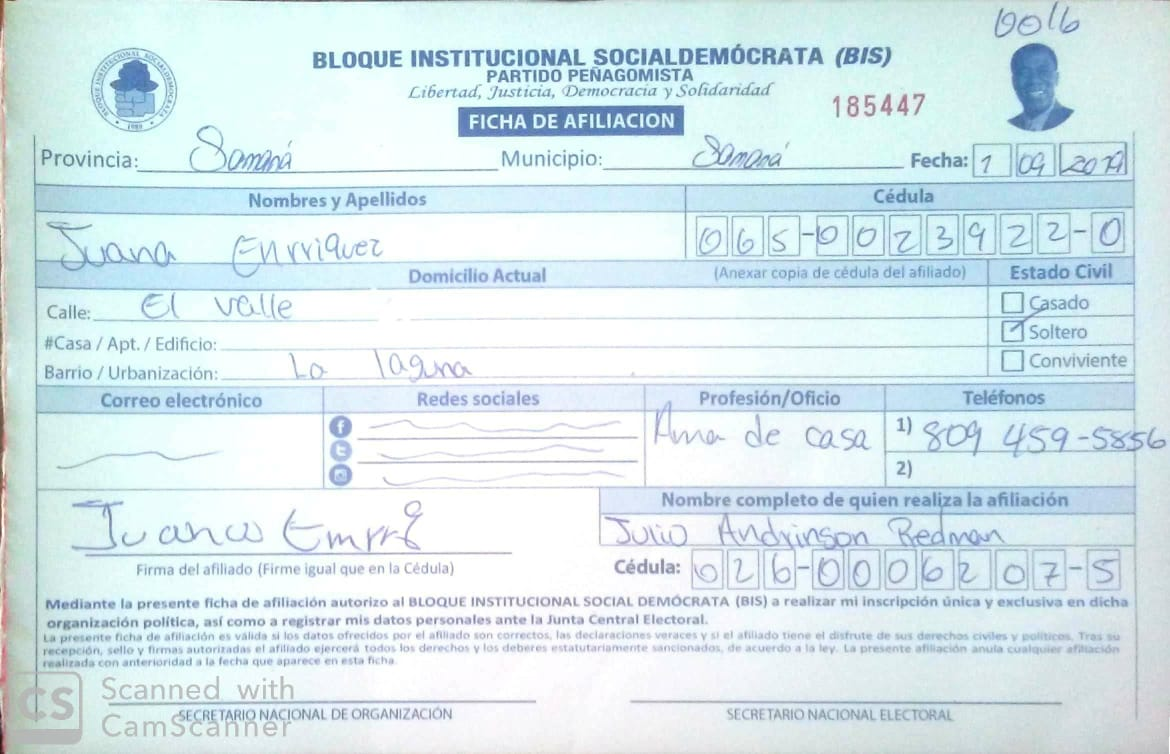 0016
BLOQUE INSTITUCIONAL SOCIALDEMÓCRATA (BIS)
PARTIDO PEÑAGOMISTA
Libertad, Justicia, Democracia y Solidaridad
185447
FICHA DE AFILIACION
Provincia: Samaná Municipio: Samaná Fecha: 1 09 2019
Nombres y Apellidos Cédula
Juana Enrriquez 065-0023922-0
Domicilio Actual (Anexar copia de cédula del afiliado) Estado Civil
Calle: El valle Casado
#Casa / Apt. / Edificio: Soltero
Barrio / Urbanización: La laguna Conviviente
Correo electrónico Redes sociales Profesión/Oficio Teléfonos
Ama de casa 1) 809 459-5856
2)
Nombre completo de quien realiza la afiliación
Juana Julio Andrinson Redman
Firma del afiliado (Firme igual que en la Cédula) Cédula: 026-0006207-5
Mediante la presente ficha de afiliación autorizo al BLOQUE INSTITUCIONAL SOCIAL DEMÓCRATA (BIS) a realizar mi inscripción única y exclusiva en dicha
organización política, así como a registrar mis datos personales ante la Junta Central Electoral.
La presente ficha de afiliación es válida si los datos ofrecidos por el afiliado son correctos, las declaraciones veraces y si el afiliado tiene el disfrute de sus derechos civiles y políticos. Tras su
recepción, sello y firmas autorizadas el afiliado ejercerá todos los derechos y los deberes estatutariamente sancionados, de acuerdo a la ley. La presente afiliación anula cualquier afiliación
realizada con anterioridad a la fecha que aparece en esta ficha.
CS Scanned with
CamScanner
SECRETARIO NACIONAL DE ORGANIZACIÓN SECRETARIO NACIONAL ELECTORAL